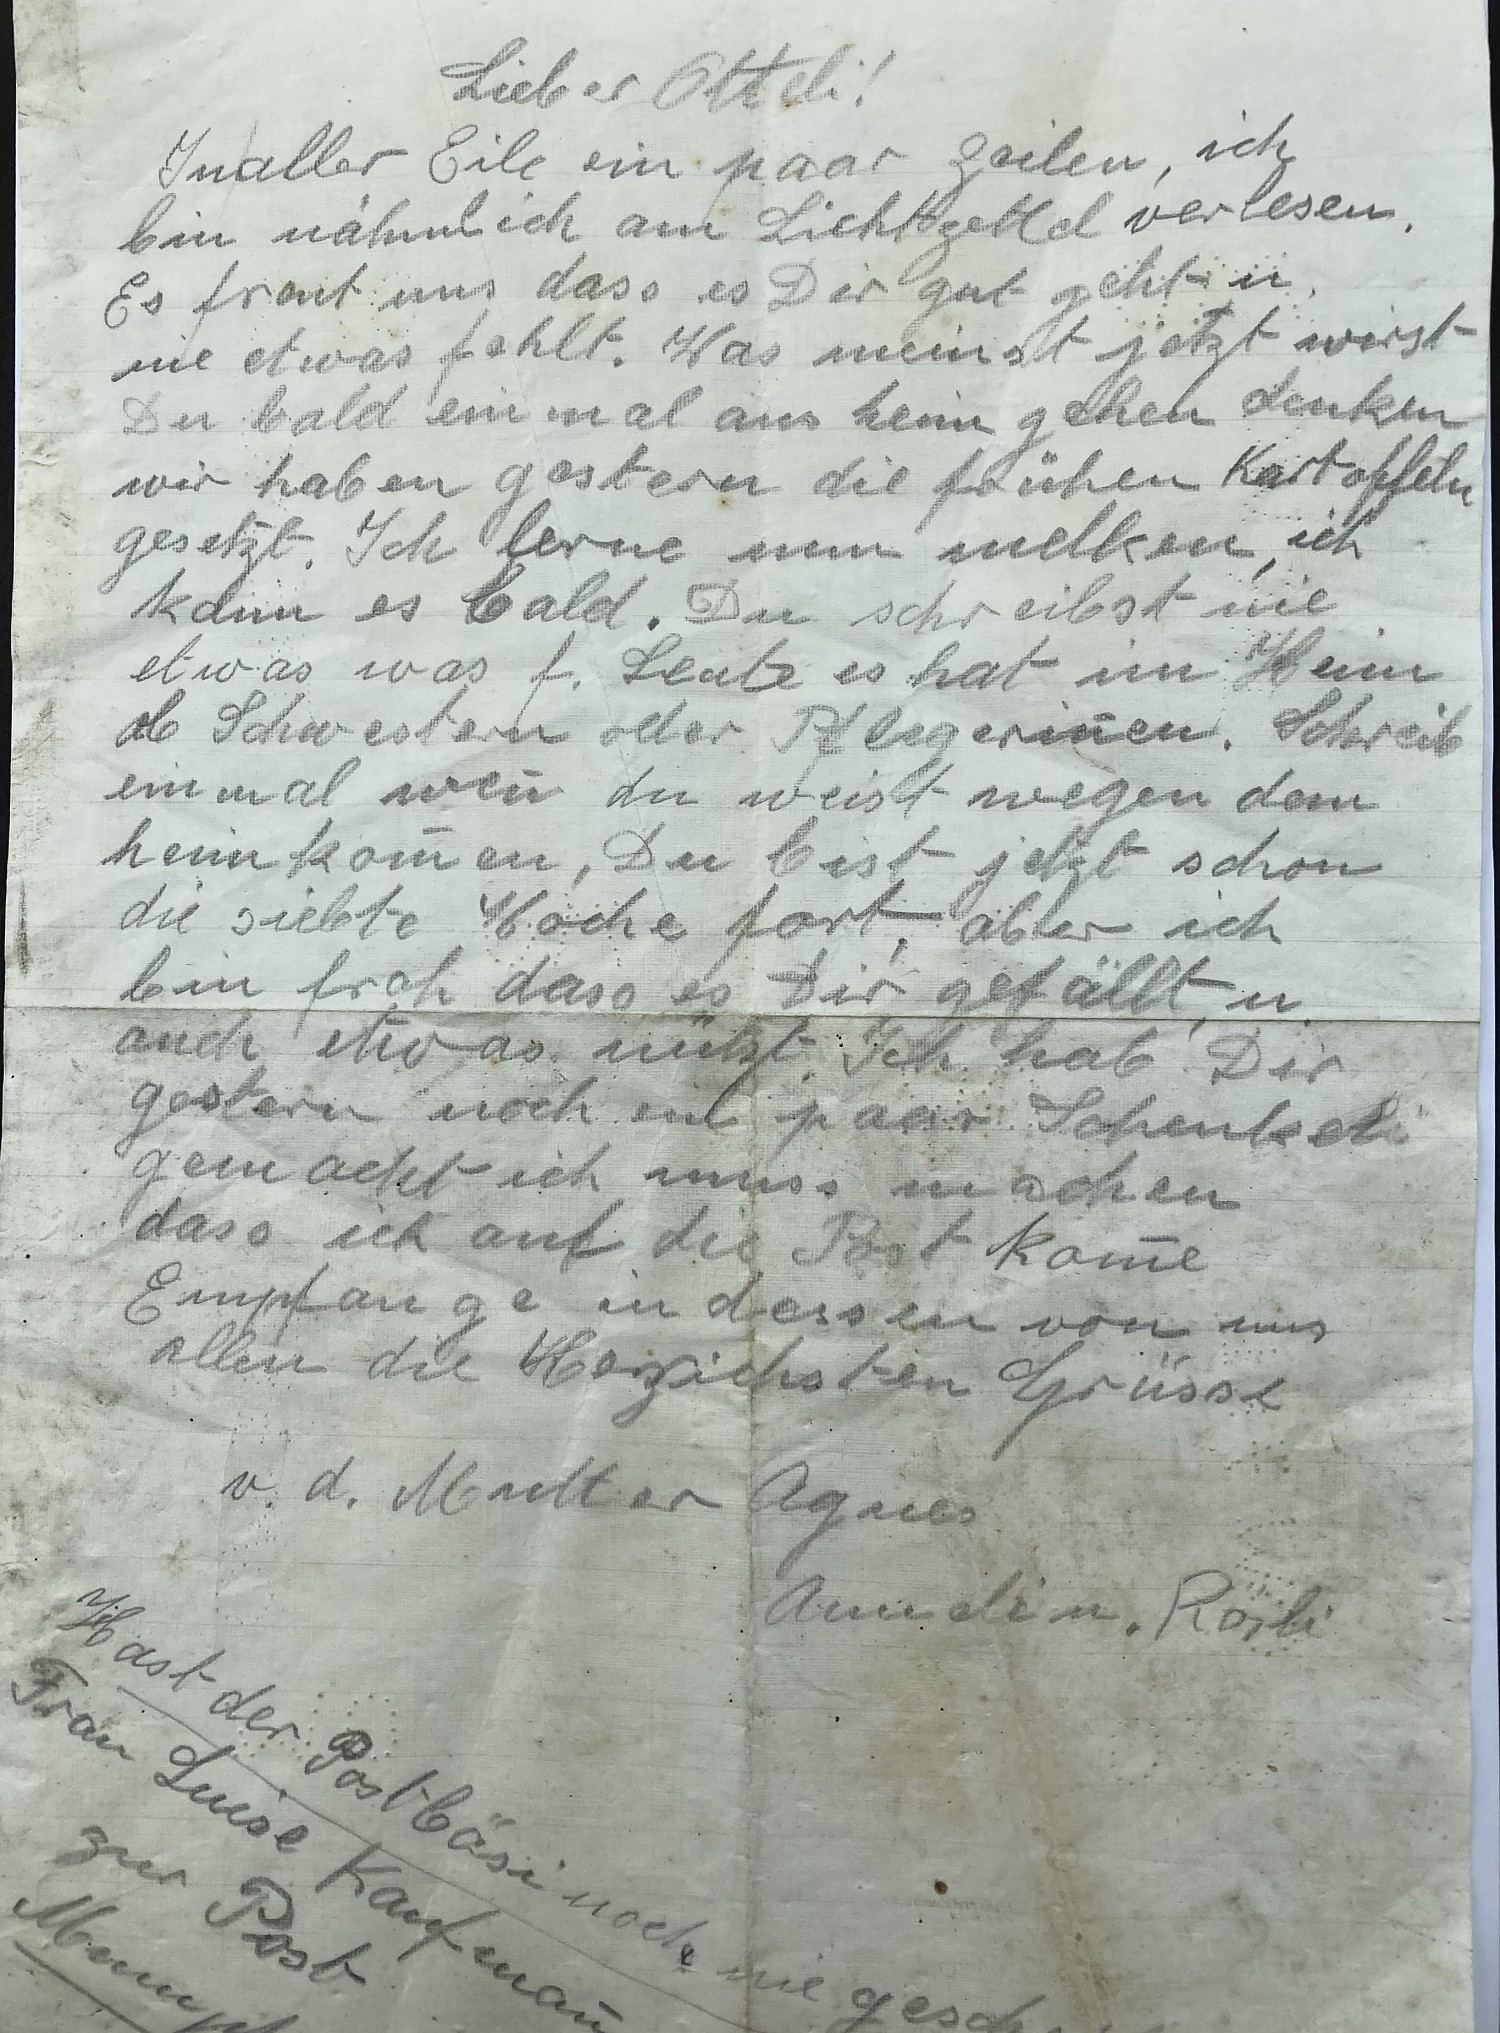 Lieber Otteli!
In aller Eile ein paar Zeilen, ich
bin nähmlich am Lichtzettel verlesen.
Es freut uns dass es Dir gut geht u.
nie etwas fehlt. Was meinst jetzt wirst
Du bald einmal ans heim gehen denken
wir haben gestern die frühen Kartoffeln
gesetzt. Ich lerne nun melken, ich
kann es bald. Du schreibst nie
etwas was f. Leute es hat im Heim
ob Schwestern oder Pflegerin̄en. Schreib
einmal wen̄ du weist wegen dem
heimkom̄en, Du bist jetzt schon
die siebte Woche fort, aber ich
bin froh dass es Dir gefällt, u.
auch etwas nützt. Ich hab Dir
gestern noch ein paar Schenkeli
gemacht ich muss machen
dass ich auf die Post kom̄e
Empfange indessen von uns
allen die Herzichsten Grüsse
v. d. Mutter Agnes
Anneli u. Rösli
Hast der Postbäsi noch nie
Frau Luise Kaufman̄
zur Post